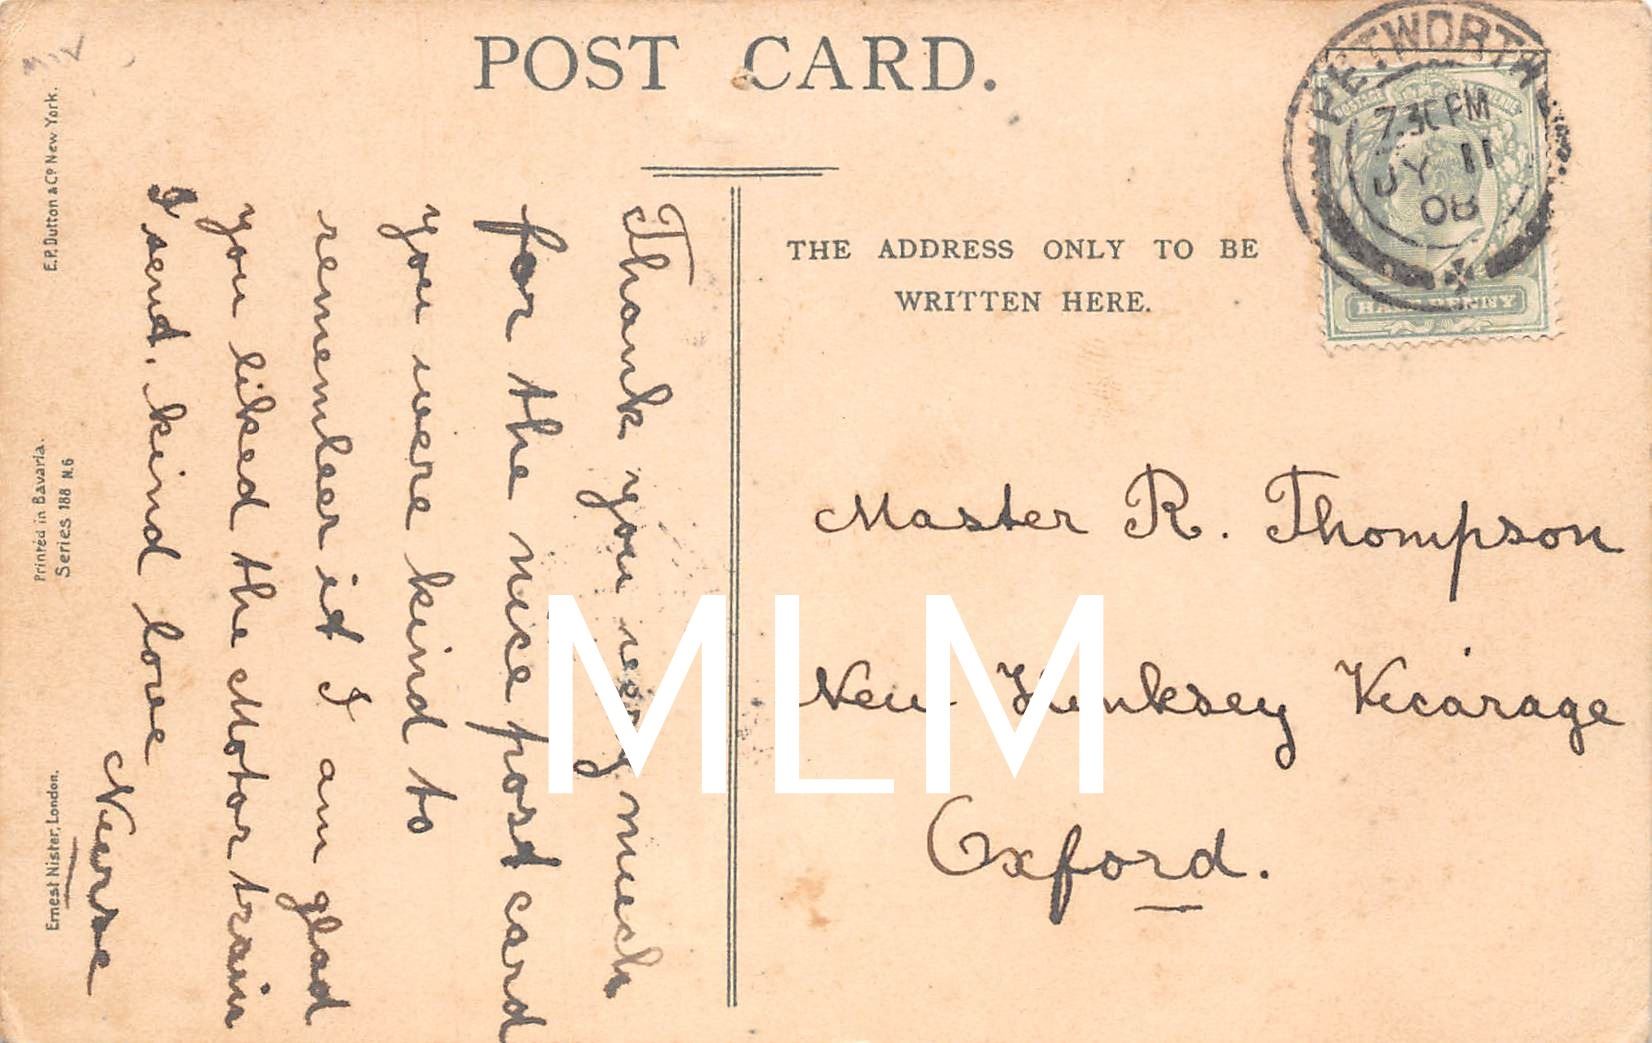 POST CARD.
THE ADDRESS ONLY TO BE
WRITTEN HERE.
PETWORTH
7.30 PM
JY 11
08
POSTAGE
HALFPENNY
Thank you very much
for the nice post card
you were kind to
remember it I am glad
you liked the Motor train
I send, kind love
Nurse
Master R. Thompson
New Hinksey Vicarage
Oxford.
E.P. Dutton & Co New York.
Printed in Bavaria.
Series 188 N.6
Ernest Nister, London.
MLM